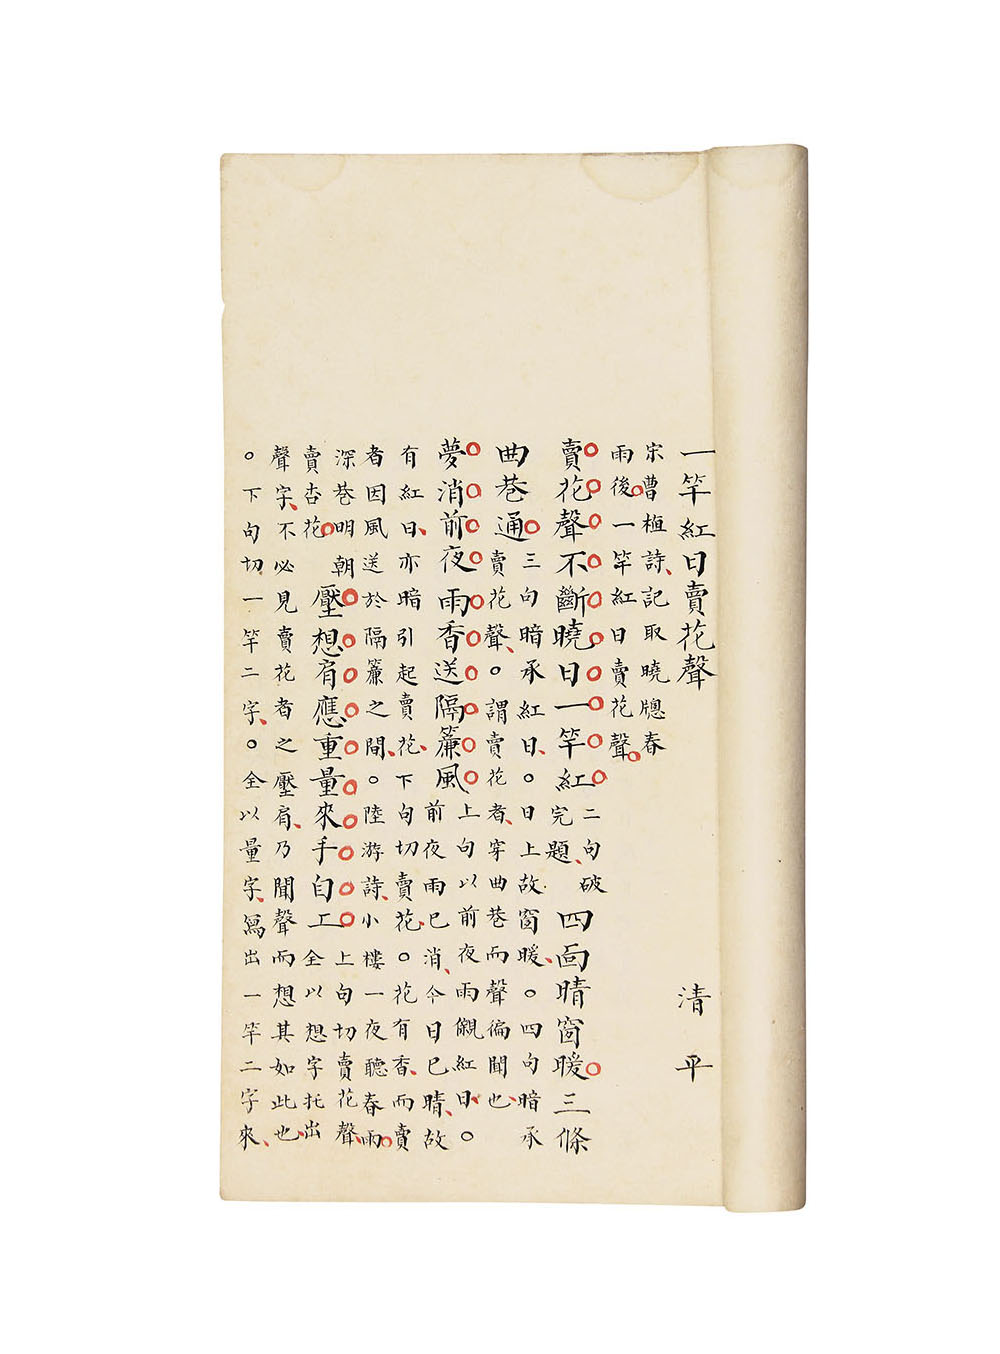 一竿紅日賣花聲 清平
宋曹植詩、記取曉牕春
雨後一竿紅日賣花聲
賣花聲不斷曉日一竿紅
二句破
完題、
四面晴窗暖三條
曲巷通
三句暗承紅日、。日上故窗暖、。四句暗承
賣花聲、。謂賣花者、穿曲巷而聲偏聞也、
夢消前夜雨香送隔簾風
上句以前夜雨儭紅日、。
前夜雨已消、今日已晴、故
有紅日、亦暗引起賣花、下句切賣花、。花有香、而賣
者因風送於隔簾之間、。陸游詩、小樓一夜聽春雨
深巷明朝
賣杏花
壓想肩應重量來手自工
上句切賣花聲、
全以想字托出
聲字、不必見賣花者之壓肩、乃聞聲而想其如此也、
。下句切一竿二字、。全以量字、寫出一竿二字來、